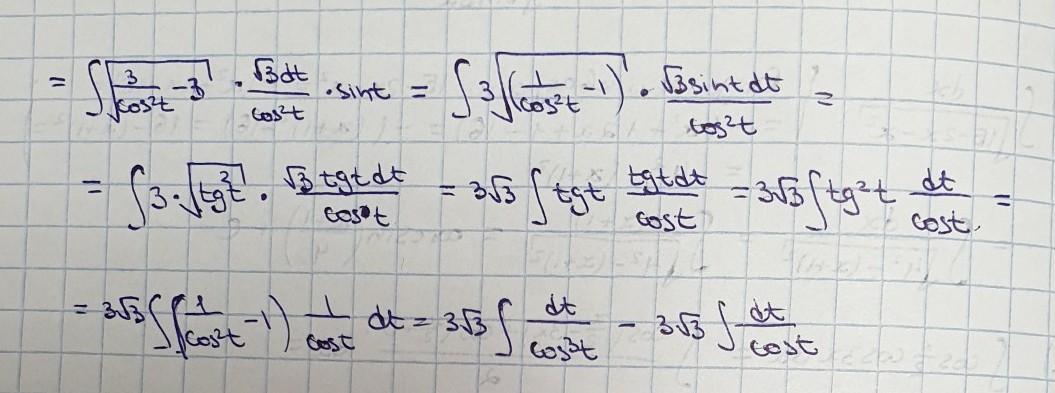 = ∫√(3/cos²t − 3) · √3dt/cos²t · sint = ∫3√(1/cos²t − 1) · √3sintdt/cos²t =
= ∫3·√tg²t · √3 tgtdt/cost = 3√3 ∫tgt tgtdt/cost = 3√3∫tg²t dt/cost =
= 3√3∫(1/cos²t − 1) 1/cost dt = 3√3 ∫dt/cos³t − 3√3 ∫dt/cost